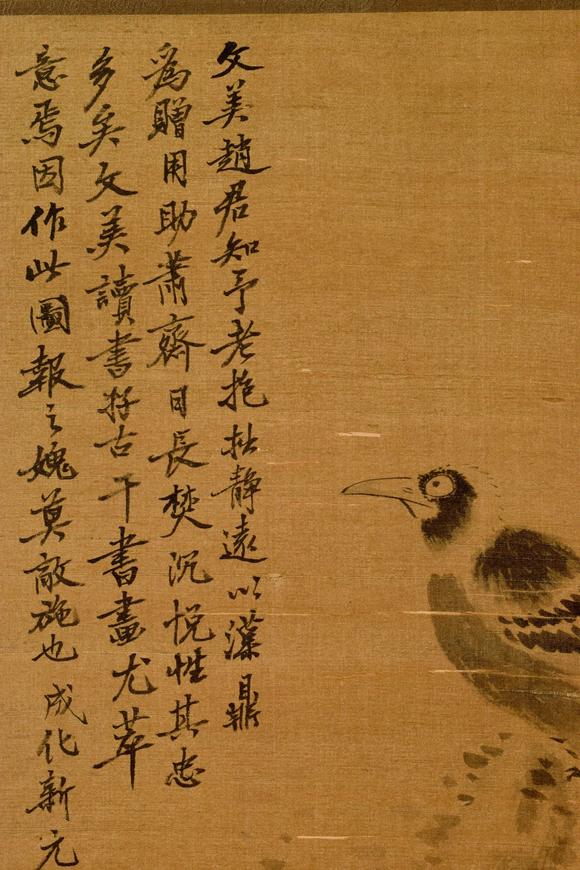 文美趙君知予老抱拙靜遠以藻鼎
為贈用助肅齋日長焚沉悅性其忠
多矣文美讀書好古于書畫尤萃
意焉因作此圖報之媿莫敵施也成化新元